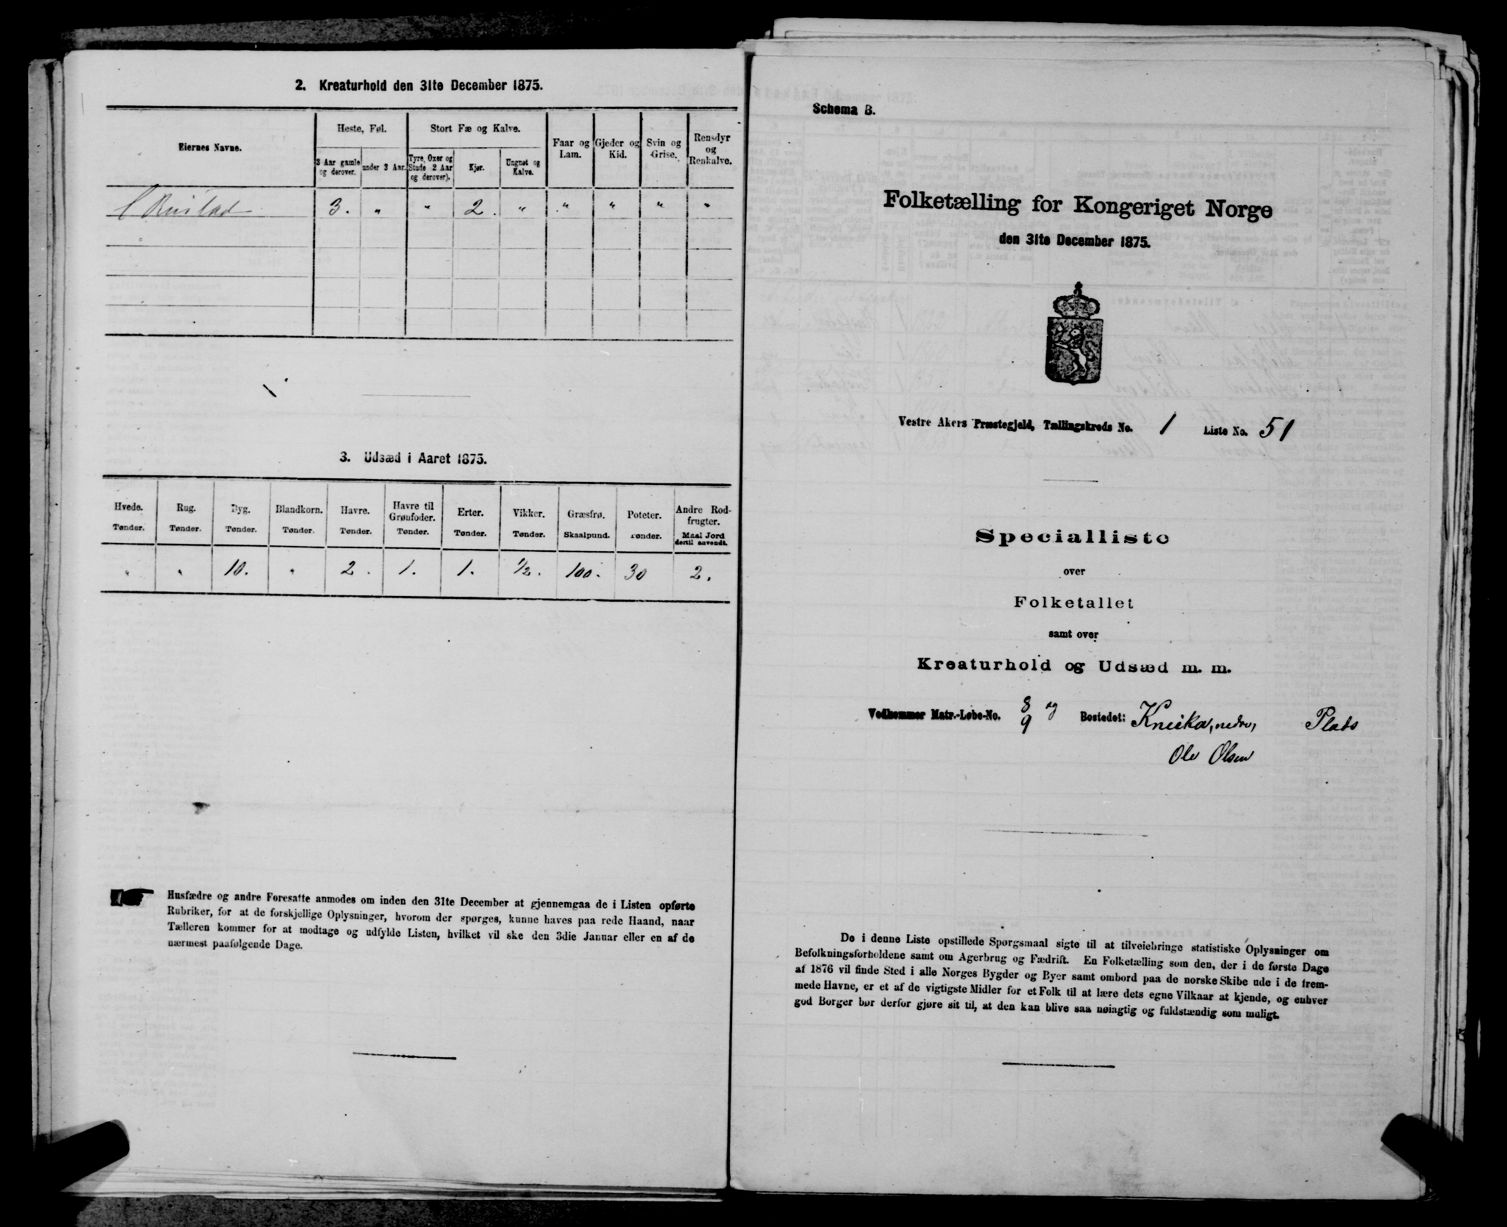 2. Kreaturhold den 31te December 1875.
Eiernes Navne.
Heste, Føl.
Stort Fæ og Kalve.
Faar og Lam.
Gjeder og Kid.
Svin og Grise.
Rensdyr og Renkalve.
3 Aar gamle og derover.
under 3 Aar.
Tyre, Oxer og Stude 2 Aar og derover).
Kjør.
Ungnøt og Kalve.
Rustad 3. „ „ 2. „ „ „ „ „
3. Udsæd i Aaret 1875.
Hvede. Rug. Byg. Blandkorn. Havre. Havre til Grønfoder. Erter. Vikker. Græsfrø. Poteter. Andre Rodfrugter.
Tønder. Tønder. Tønder. Tønder. Tønder. Tønder. Tønder. Tønder. Skaalpund. Tønder. Maal Jord dertil anvendt.
„ „ 10. „ 2. 1. 1. 1/2. 100. 30 2.
Husfædre og andre Foresatte anmodes om inden den 31te December at gjennemgaa de i Listen opførte
Rubriker, for at de forskjellige Oplysninger, hvorom der spørges, kunne haves paa rede Haand, naar
Tælleren kommer for at modtage og udfylde Listen, hvilket vil ske den 3die Januar eller en af de
nærmest paafølgende Dage.
Schema B.
Folketælling for Kongeriget Norge
den 31te December 1875.
Vestre Akers Præstegjeld, Tællingskreds No. 1 Liste No. 51
Specialliste
over
Folketallet
samt over
Kreaturhold og Udsæd m. m.
Vedkommer Matr.-Løbe-No. 8 og 9 Bostedet: Kneika, nedre, Plads
Ole Olsen
De i denne Liste opstillede Spørgsmaal sigte til at tilveiebringe statistiske Oplysninger om
Befolkningsforholdene samt om Agerbrug og Fædrift. En Folketælling som den, der i de første Dage
af 1876 vil finde Sted i alle Norges Bygder og Byer samt ombord paa de norske Skibe ude i de frem-
mede Havne, er et af de vigtigste Midler for et Folk til at lære dets egne Vilkaar at kjende, og enhver
god Borger bør derfor gjøre sit til, at den kan blive saa nøiagtig og fuldstændig som muligt.